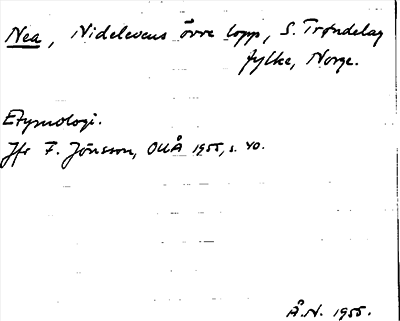 Nea, Nidelevens övre lopp, S. Trøndelag
fylke, Norge.
Etymologi.
Jfr F. Jönsson, OUÅ 1955, s. 40.
Å.N. 1955.